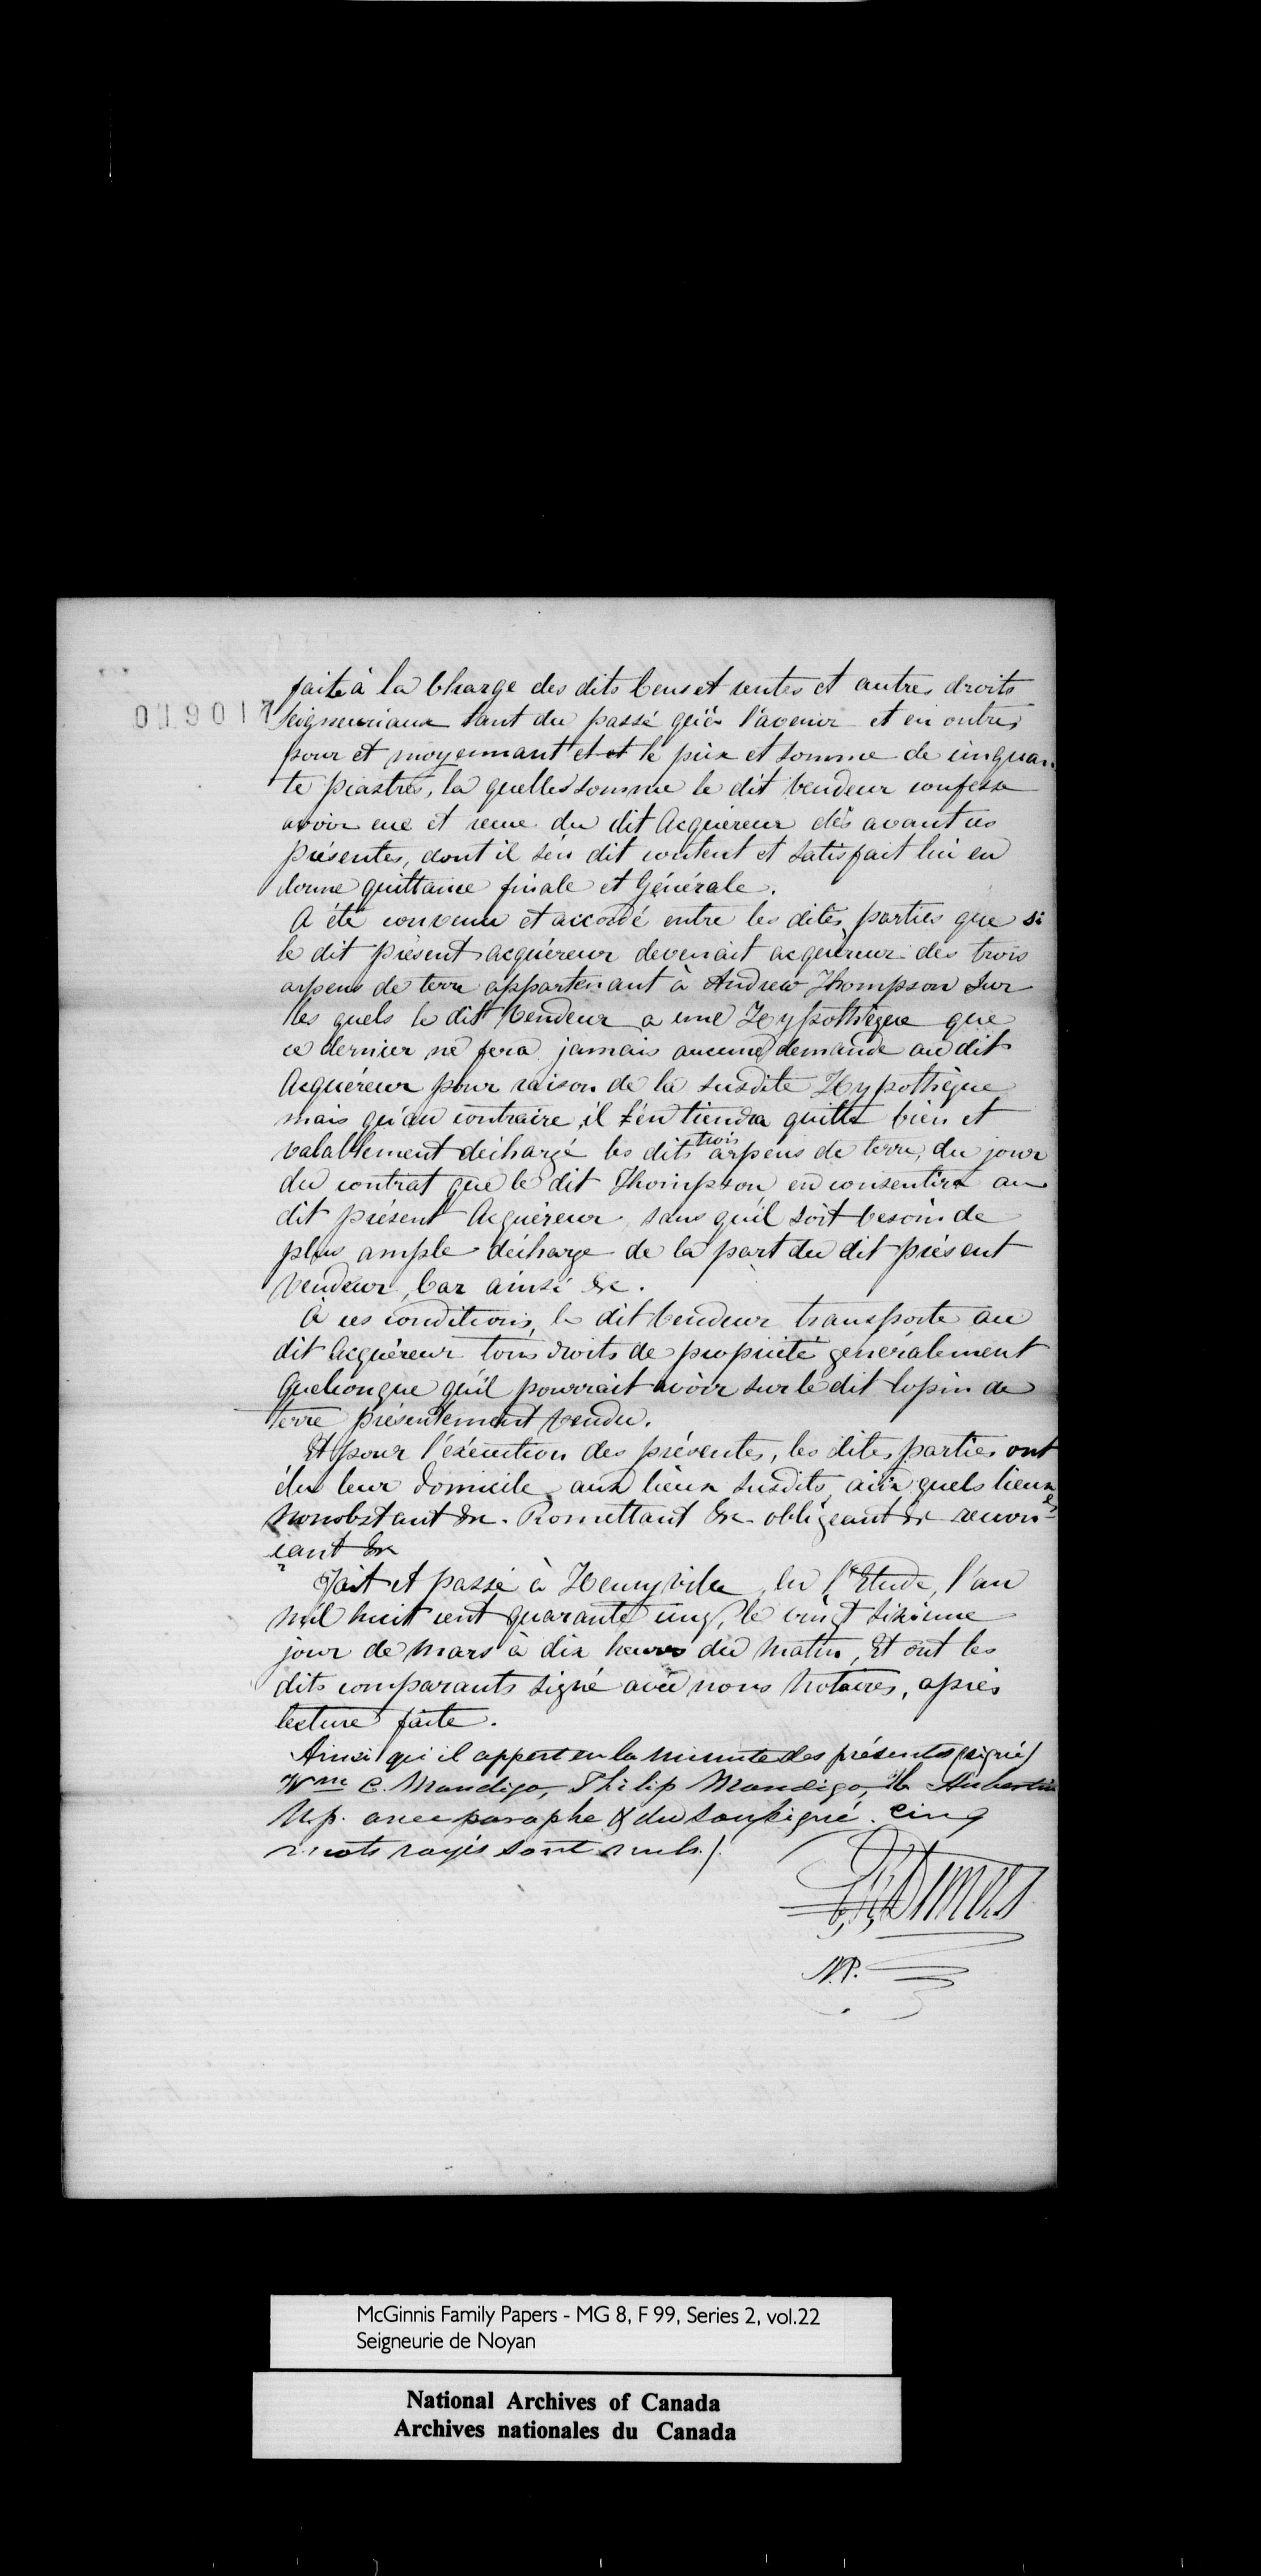 faite à la Charge des dits Cens et rentes et autres droits
019017
Seigneuriaux tant du passé qu'à l'avenir et en outre,
pour et moyennant et et le prix et somme de cinquan
te piastres, la quelle somme le dit Vendeur confesse
avoir eue et reçue du dit Acquéreur dès avant ces
présentes, dont il s'en dit content et satisfait lui en
donne quittance finale et Générale.
A été convenu et accordé entre les dites parties que si
le dit présent acquéreur devenait acquéreur des trois
arpens de terre appartenant à Andrew Thompson sur
les quels le dit Vendeur a une Hypothèque que
ce dernier ne fera jamais aucune demande au dit
Acquéreur pour raison de la susdite Hypothèque
mais qu'au contraire, il s'en tiendra quitte bien et
valablement déchargé les dits trois arpens de terre, du jour
du contrat que le dit Thompson en consentira au
dit présent Acquéreur sans qu'il soit besoin de
plus ample décharge de la part du dit présent
Vendeur, Car ainsi &c.
À ces conditions, le dit Vendeur transporte au
dit Acquéreur tous droits de propriété généralement
Quelconque qu'il pourrait avoir sur le dit lopin de
terre présentement vendu.
Et pour l'exécution des présentes, les dites parties ont
élu leur domicile aux lieux susdits, aux quels lieux
nonobstant &c. Promettant &c. obligeant &c renon
çant &c
Fait et passé à Henryville, en l'Etude, l'an
mil huit cent quarante un, le vingt sixième
jour de mars à dix heures du matin, Et ont les
dits comparants signé avec nous Notaires, après
lecture faite.
Ainsi qu'il appert en la minute des présentes (signé)
Wm C. Mandigo, Philip Mandigo, Aubertin
N.p. avec paraphe & du soussigné. Cinq
mots rayés sont nuls./.
Demers
N.P.
McGinnis Family Papers - MG 8, F 99, Series 2, vol.22
Seigneurie de Noyan
National Archives of Canada
Archives nationales du Canada